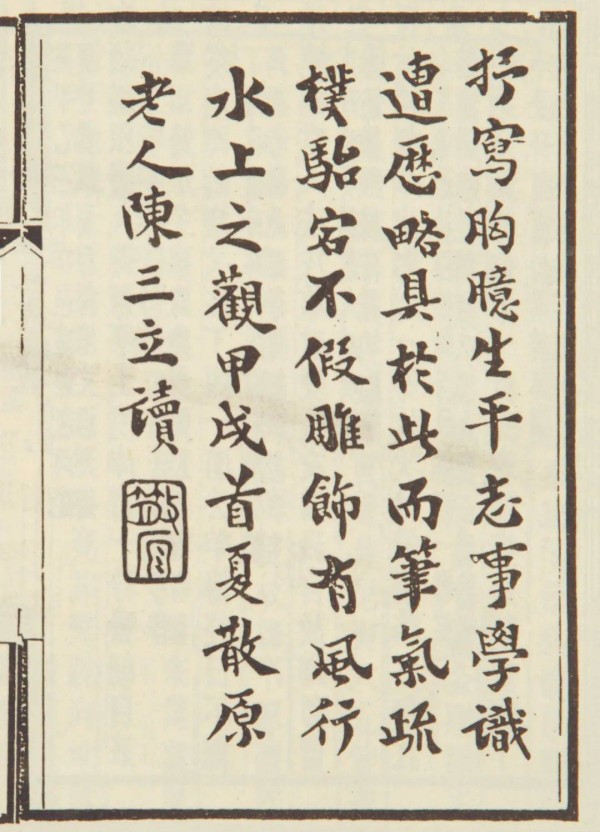 抒寫胸臆生平志事學識
遭歷略具於此而筆氣疏
樸駘宕不假雕飾有風行
水上之觀甲戌首夏散原
老人陳三立讀
散原